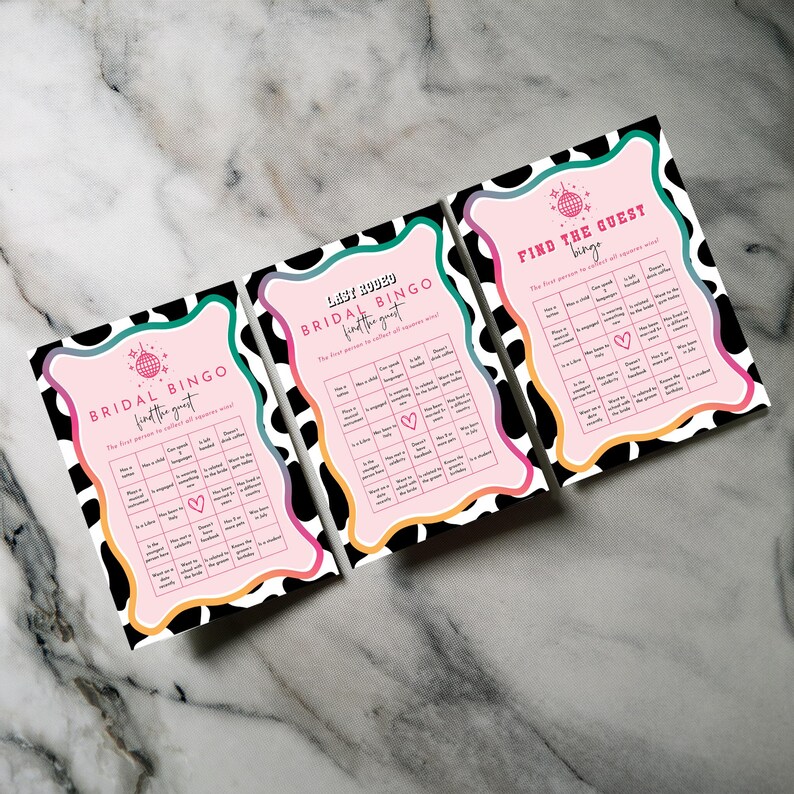 BRIDAL BINGO
find the guest
The first person to collect all squares wins!
Has a tattoo
Has a child
Can speak 2 languages
Is left handed
Doesn't drink coffee
Plays a musical instrument
Is engaged
Is wearing something new
Is related to the bride
Went to the gym today
Is a Libra
Has been to Italy
Has been married 5+ years
Has lived in a different country
Is the youngest person here
Has met a celebrity
Doesn't have facebook
Has 2 or more pets
Was born in July
Went on a date recently
Went to school with the bride
Is related to the groom
Knows the groom's birthday
Is a student
LAST RODEO
BRIDAL BINGO
find the guest
The first person to collect all squares wins!
Has a tattoo
Has a child
Can speak 2 languages
Is left handed
Doesn't drink coffee
Plays a musical instrument
Is engaged
Is wearing something new
Is related to the bride
Went to the gym today
Is a Libra
Has been to Italy
Has been married 5+ years
Has lived in a different country
Is the youngest person here
Has met a celebrity
Doesn't have facebook
Has 2 or more pets
Was born in July
Went on a date recently
Went to school with the bride
Is related to the groom
Knows the groom's birthday
Is a student
FIND THE GUEST
bingo
The first person to collect all squares wins!
Has a tattoo
Has a child
Can speak 2 languages
Is left handed
Doesn't drink coffee
Plays a musical instrument
Is engaged
Is wearing something new
Is related to the bride
Went to the gym today
Is a Libra
Has been to Italy
Has been married 5+ years
Has lived in a different country
Is the youngest person here
Has met a celebrity
Doesn't have facebook
Has 2 or more pets
Was born in July
Went on a date recently
Went to school with the bride
Is related to the groom
Knows the groom's birthday
Is a student